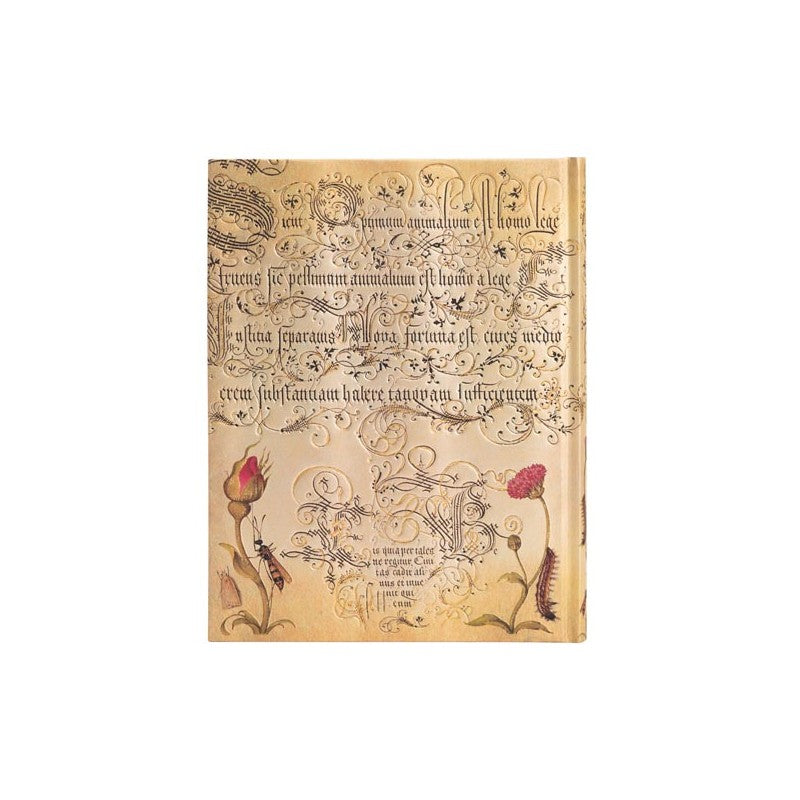 Sicut Optimum animalium est homo lege
fruens sic pessimum animalium est homo a lege et
Iustitia separatus Nova fortuna est cives medio
crem substantiam habere tanquam sufficientem
Et Be
is quia per tales
ne regitur Civi
tas cadit
nus et
nit qui
cum